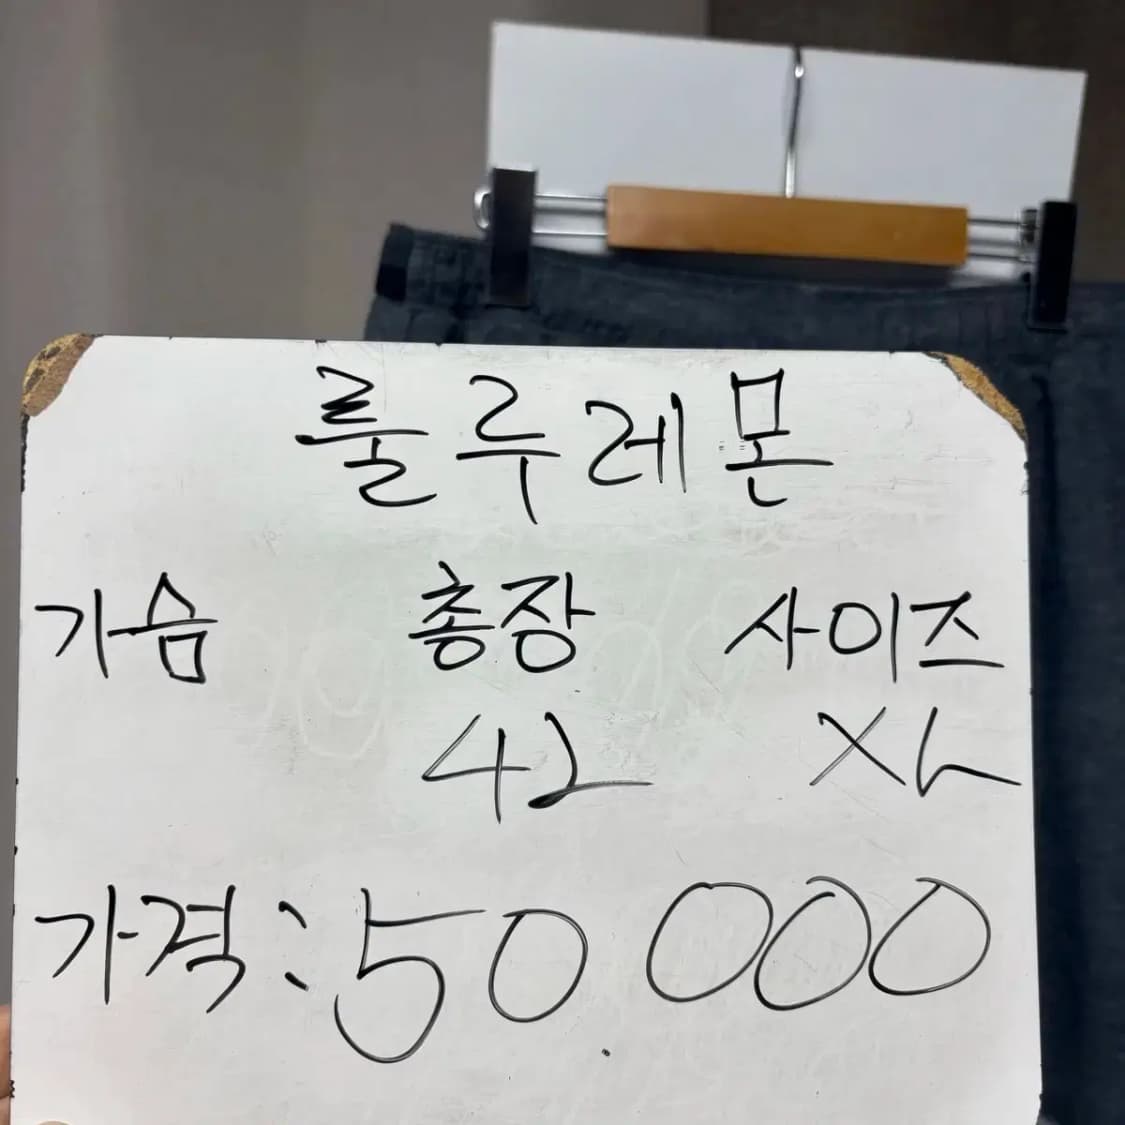 룰루레몬
가슴 총장 사이즈
42 XL
가격:50.000